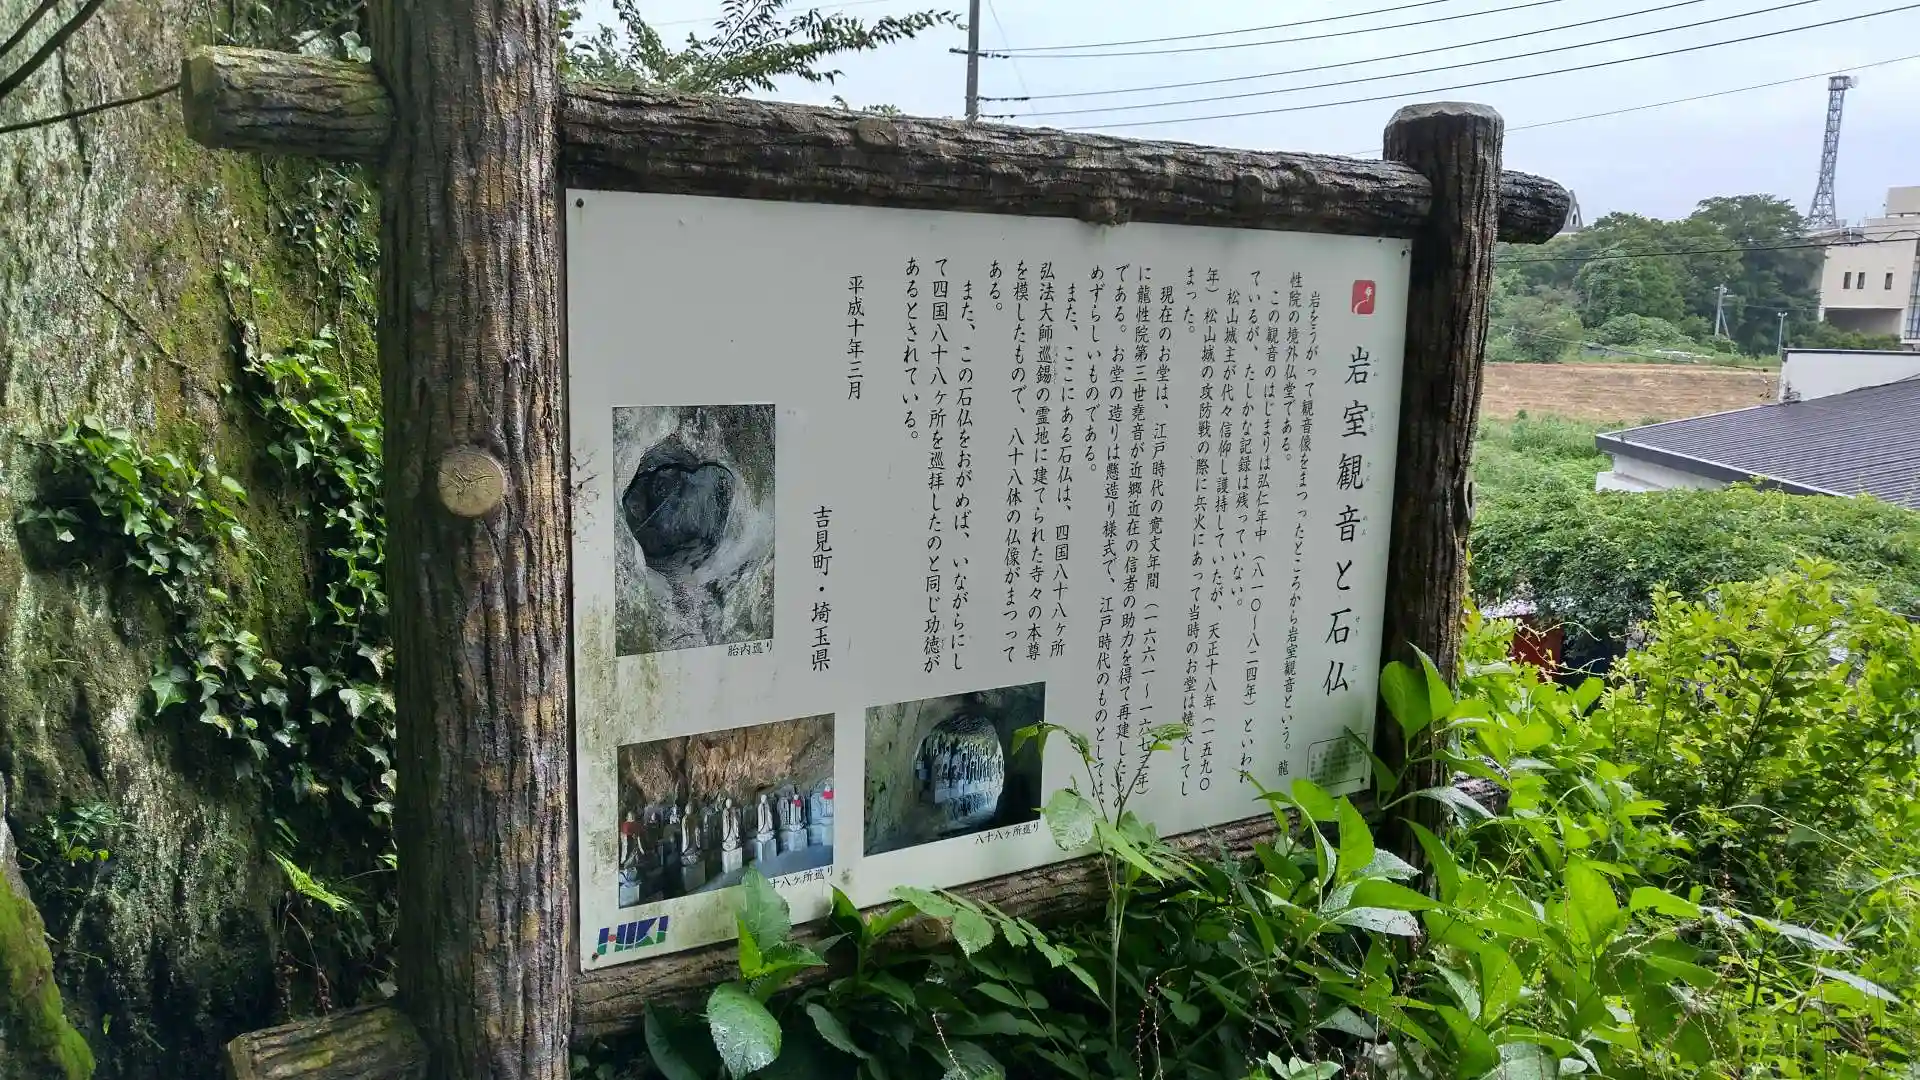 岩室観音と石仏
岩をうがって観音像をまつったところから岩室観音という。龍
性院の境外仏堂である。
この観音のはじまりは弘仁年中（八一〇〜八二四年）といわれ
ているが、たしかな記録は残っていない。
松山城主が代々信仰し護持していたが、天正十八年（一五九〇
年）松山城の攻防戦の際に兵火にあって当時のお堂は焼失してし
まった。
現在のお堂は、江戸時代の寛文年間（一六六一〜一六七三年）
に龍性院第三世堯音が近郷近在の信者の助力を得て再建したもの
である。お堂の造りは懸造り様式で、江戸時代のものとしては、
めずらしいものである。
また、ここにある石仏は、四国八十八ヶ所
弘法大師巡錫の霊地に建てられた寺々の本尊
を模したもので、八十八体の仏像がまつって
ある。
また、この石仏をおがめば、いながらにし
て四国八十八ヶ所を巡拝したのと同じ功徳が
あるとされている。
平成十年三月
吉見町・埼玉県
胎内巡り
八十八ヶ所巡り
十八ヶ所巡り
HIKI